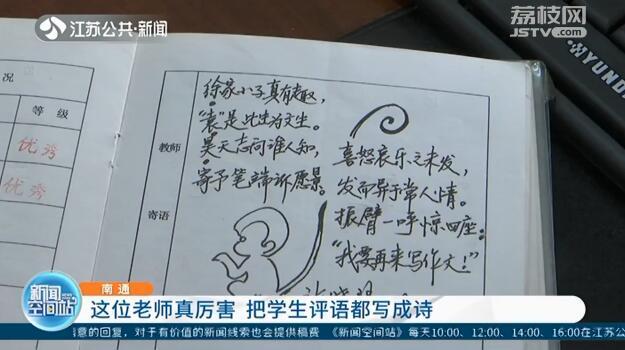 江苏公共·新闻
荔枝网
JSTV.com
HYUNDAI
况
等级
优秀
优秀
教师
寄语
徐家小子真有趣,
是此生为文生。
昊天志向谁人知,
寄予笔端诉愿景。
喜怒哀乐之未发,
发而异于常人情。
振臂一呼惊四座:
“我要再来写作文!”
新闻空间站
南通
这位老师真厉害 把学生评语都写成诗
信息的回复,对于有价值的新闻线索也会提供稿费 《新闻空间站》每天10:00、12:00、14:00、16:00在江苏公